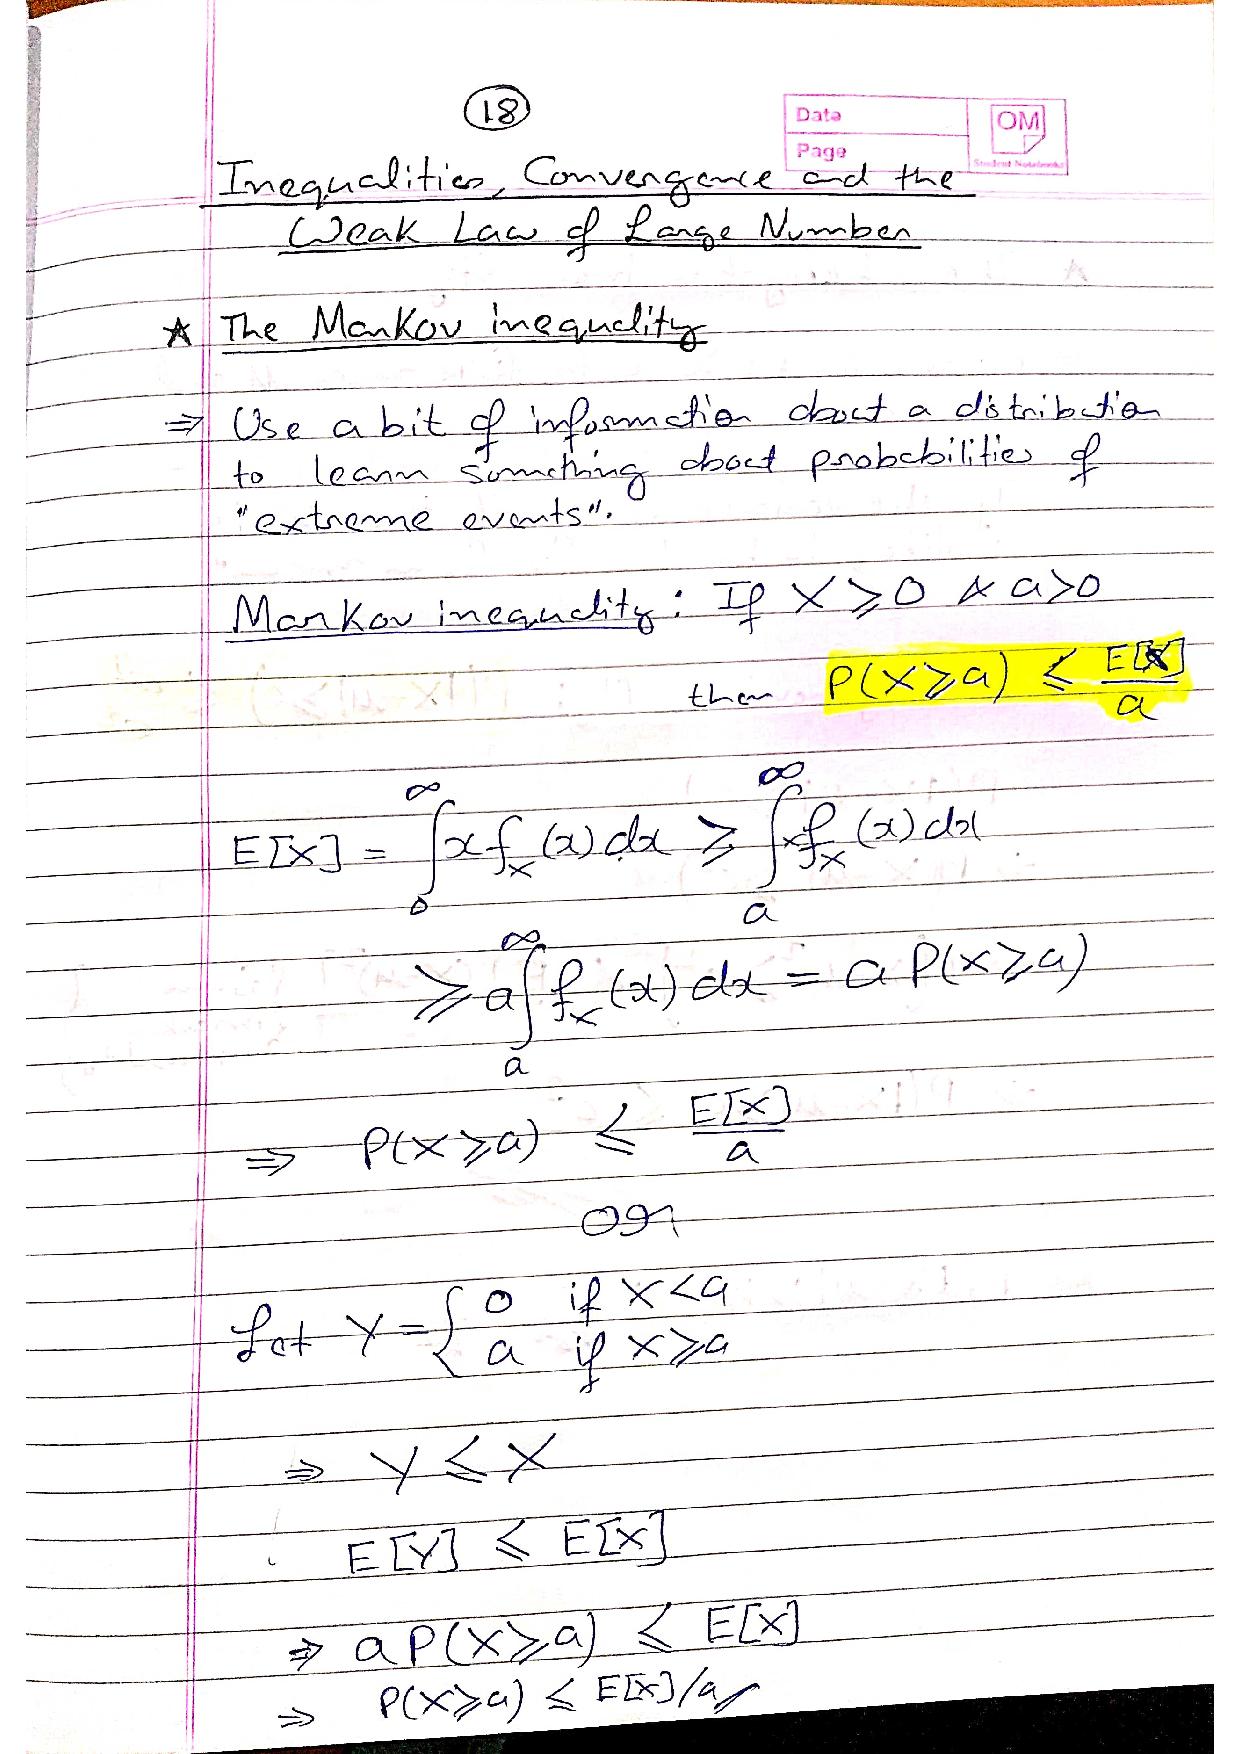 18
Data
Page
OM
Student Notebooks
Inequalities, Convergence and the
Weak Law of Large Number
★ The Markov inequality
⇒ Use a bit of information about a distribution
to learn something about probabilities of
"extreme events".
Markov inequality: If X ≥ 0 & a>0
then P(X≥a) ≤ E[X]/a
E[X] = ∫₀^∞ x f_X(x) dx ≥ ∫ₐ^∞ x f_X(x) dx
≥ a ∫ₐ^∞ f_X(x) dx = a P(X≥a)
⇒ P(X≥a) ≤ E[X]/a
OR
Let Y = { 0 if X<a
a if X≥a
⇒ Y ≤ X
E[Y] ≤ E[X]
⇒ a P(X≥a) ≤ E[X]
⇒ P(X≥a) ≤ E[X]/a